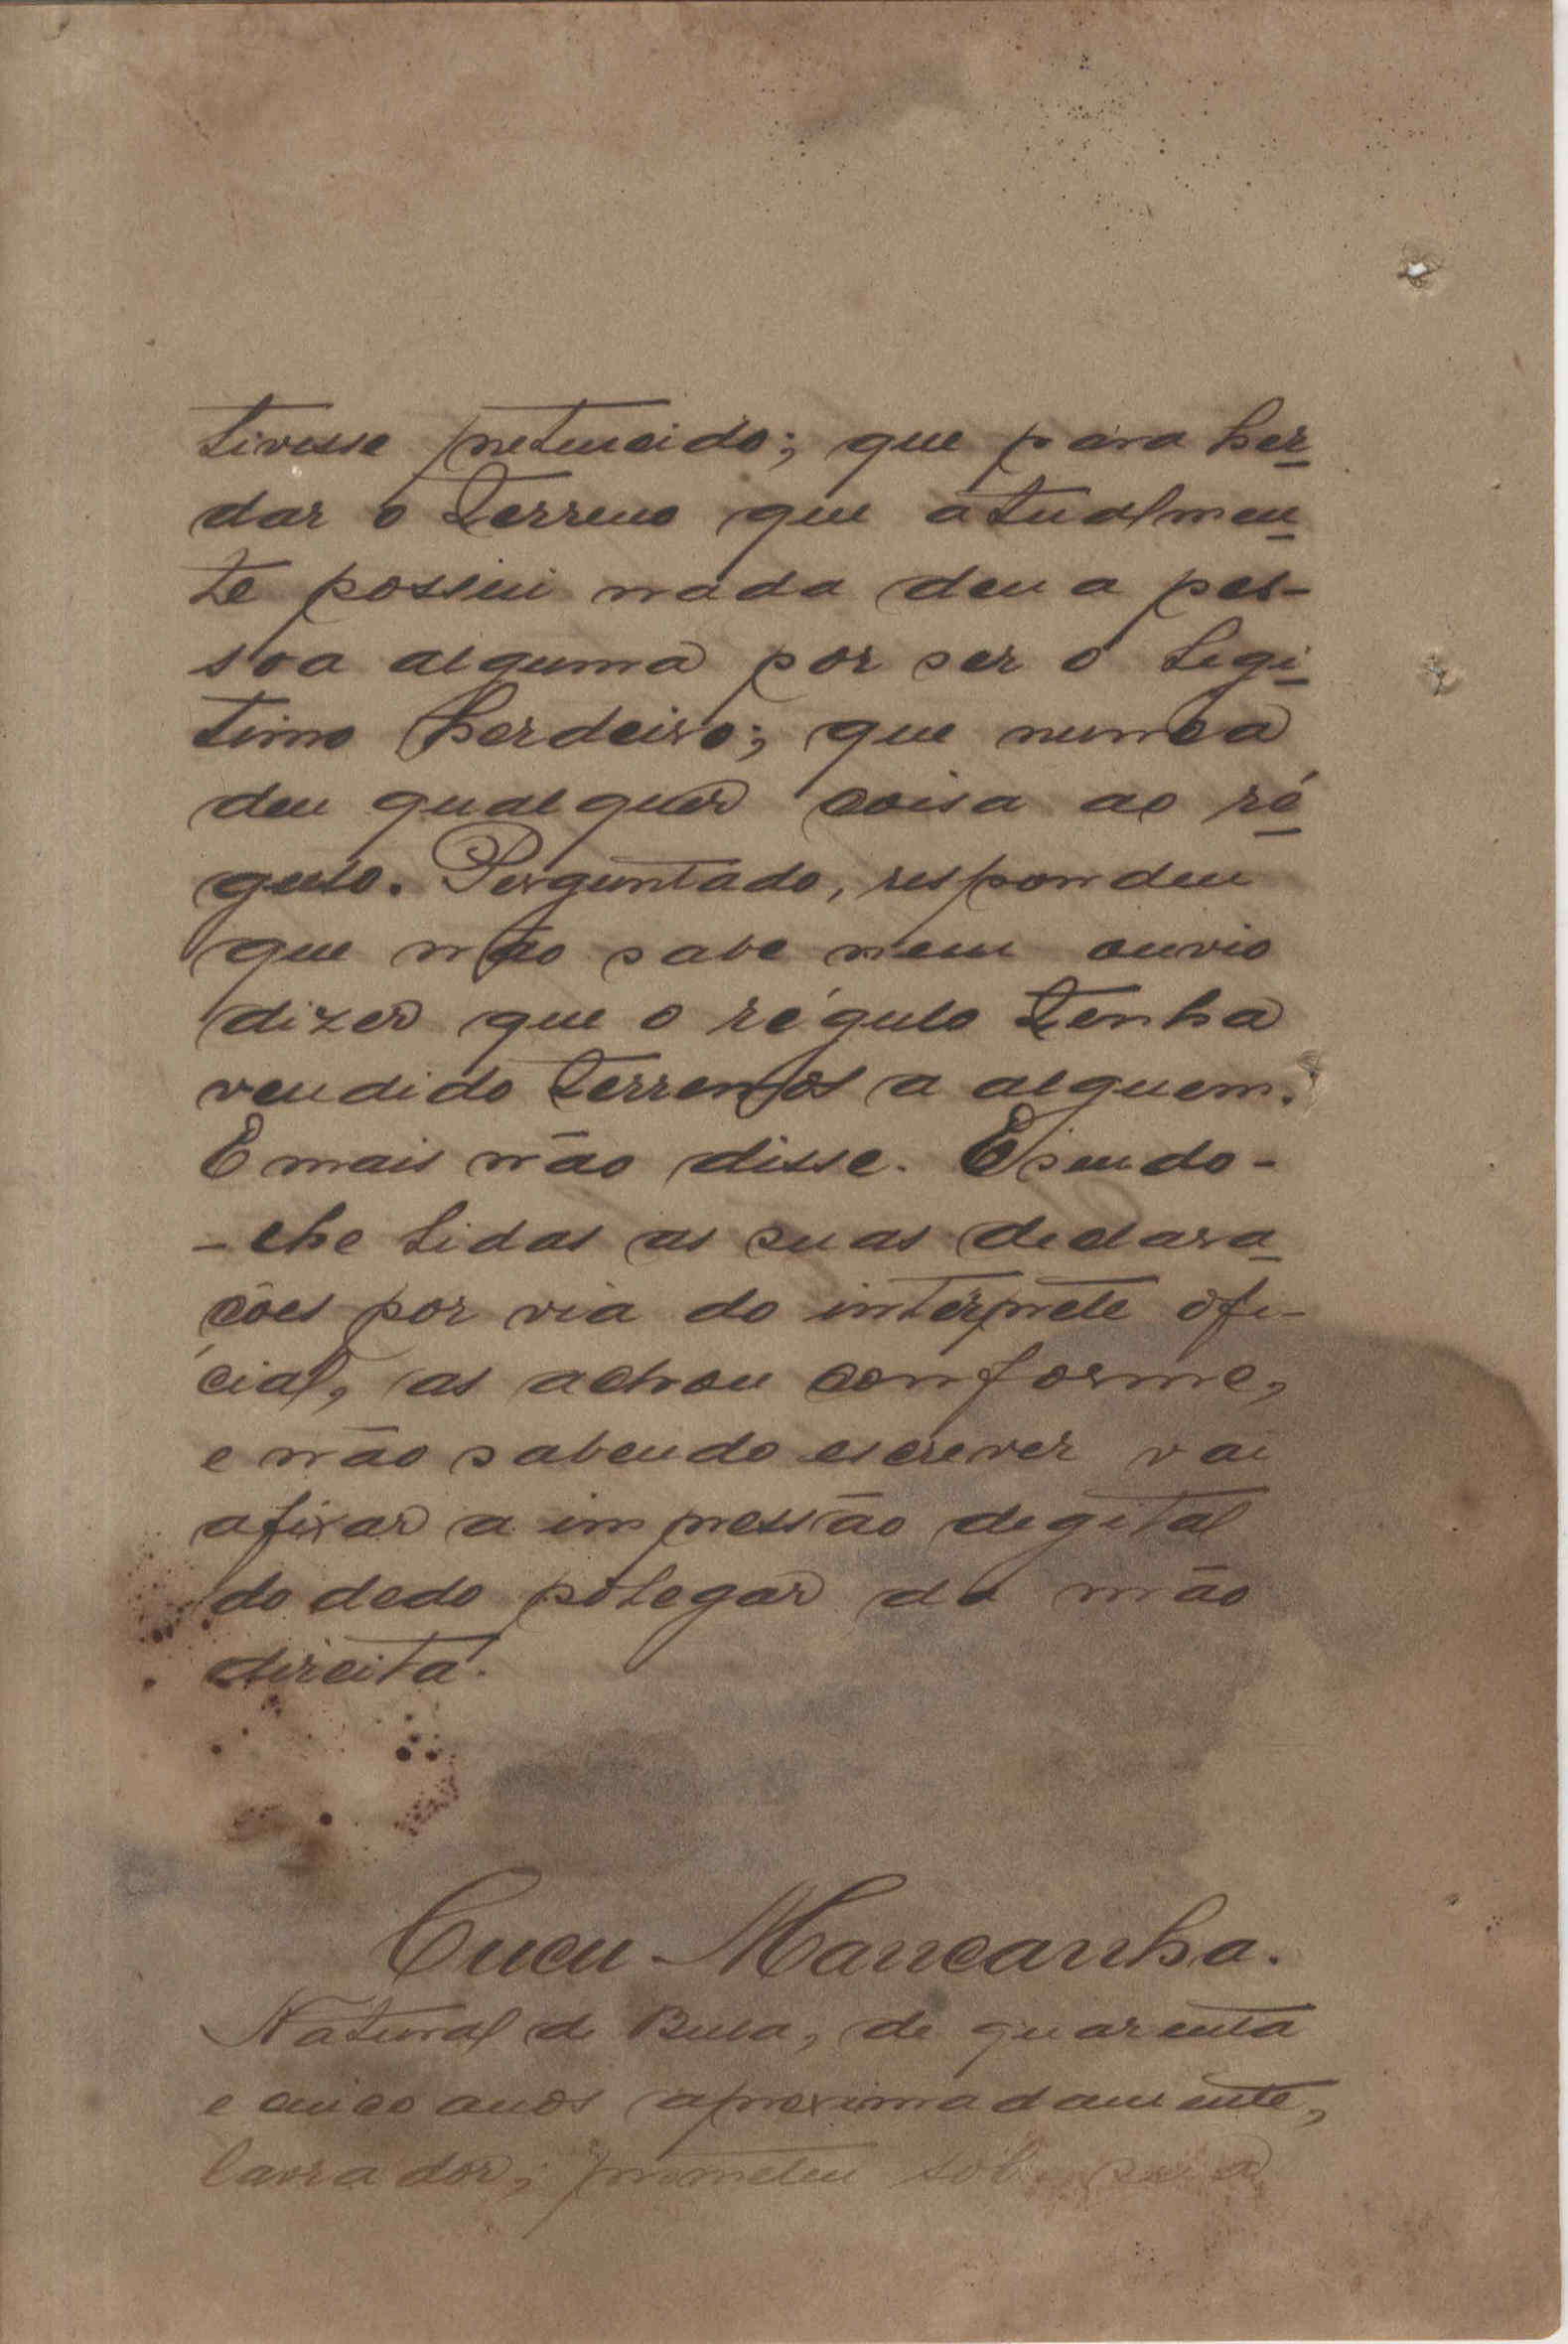 tivesse pretencido; que para her
dar o terreno que atualmen
te possui nada deu a pes-
soa alguma por ser o legi
timo herdeiro; que nunca
deu qualquer coisa ao ré
gulo. Perguntado, respondeu
que não sabe nem ouvio
dizer que o régulo tenha
vendido terrenos a alguem.
E mais não disse. E sendo-
-lhe lidas as suas declara
ções por via do intérprete ofi-
cial, as achou conforme,
e não sabendo escrever vai
afixar a impressão degital
do dedo polegar da mão
direita.
Cucu Mancanha.
Natural de Bula, de quarenta
e cinco anos aproximadamente,
lavrador; prometeu sob sua